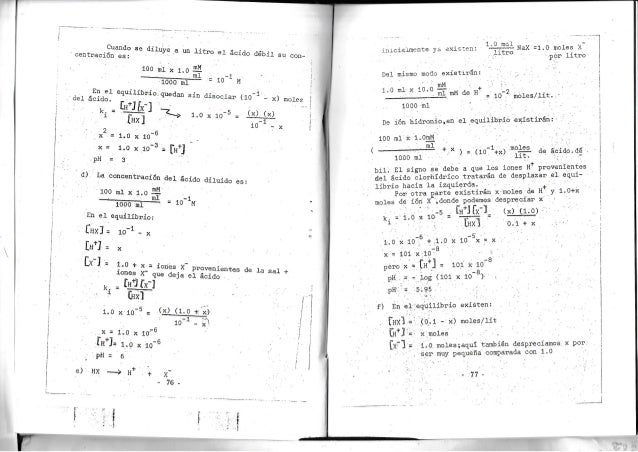 Cuando se diluye a un litro el ácido débil su con-
centración es:
100 ml x 1.0 mM
ml
1000 ml
= 10-1 M
En el equilibrio quedan sin disociar (10-1 - x) moles
del ácido.
ki = [H+] [X-]
[HX]
1.0 x 10-5 = (x) (x)
10-1 - x
x2 = 1.0 x 10-6
x = 1.0 x 10-3 = [H+]
pH = 3
d) La concentración del ácido diluido es:
100 ml x 1.0 mM
ml
1000 ml
= 10-1M
En el equilibrio:
[HX] = 10-1 - x
[H+] = x
[X-] = 1.0 + x = iones X- provenientes de la sal +
iones X- que deja el ácido
ki = [H+] [X-]
[HX]
1.0 x 10-5 = (x) (1.0 + x)
10-1 - x
x = 1.0 x 10-6
[H+]= 1.0 x 10-6
pH = 6
e) HX → H+ + X-
- 76 -
inicialmente ya existen: 1.0 mol NaX =1.0 moles X-
litro
por litro
Del mismo modo existirán:
1.0 ml x 10.0 mM
ml mM de H+
1000 ml
= 10-2 moles/lit.
De ión hidronio,en el equilibrio existirán:
100 ml x 1.0mM
ml
( + x ) = (10-1+x) moles de ácido dé
1000 ml
lit.
bil. El signo se debe a que los iones H+ provenientes
del ácido clorhídrico tratarán de desplazar el equi-
librio hacia la izquierda.
Por otra parte existirán x moles de H+ y 1.0+x
moles de ión X-,donde podemos despreciar x
ki = 1.0 x 10-5 = [H+] [X-] = (x) (1.0)
[HX]
0.1 + x
1.0 x 10-6 + 1.0 x 10-5x = x
x = 101 x 10-8
pero x = [H+] = 101 x 10-8
pH = - log (101 x 10-8)
pH = 5.95
f) En el equilibrio existen:
[HX] = (0.1 - x) moles/lit
[H+] = x moles
[X-] = 1.0 moles;aquí también despreciamos x por
ser muy pequeña comparada con 1.0
- 77 -